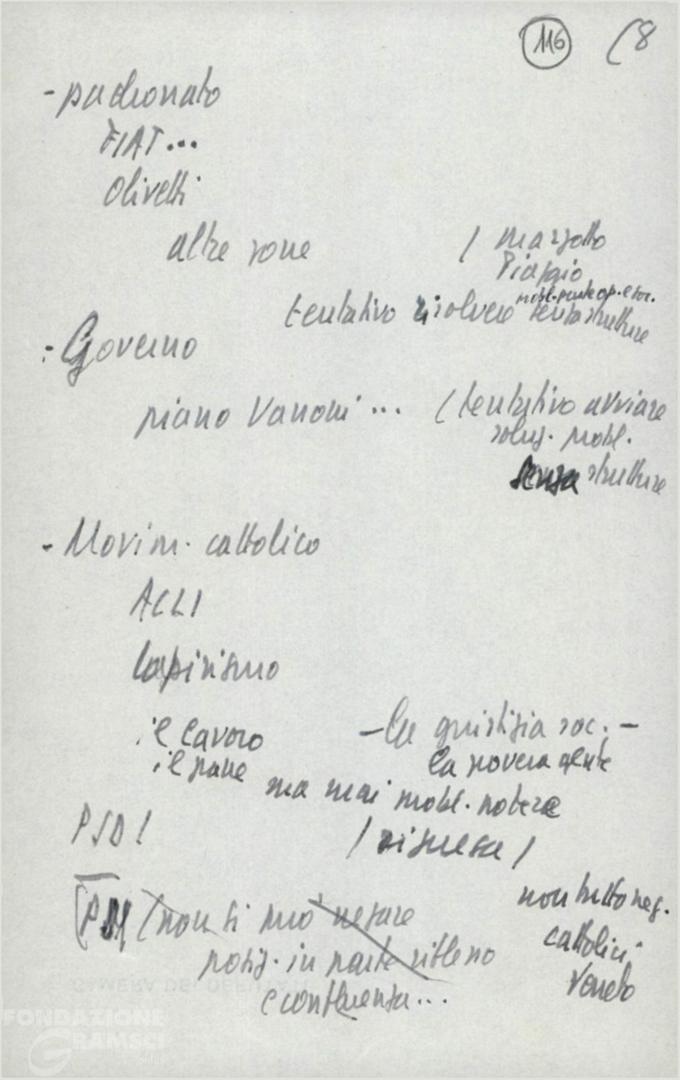 116 (8
- padronato
FIAT...
Olivetti
altre zone / Marzotto
Piaggio
mobl. parte op. e soc.
tentativo risolvere senza strutture
: Governo
piano Vanoni... (tentativo avviare
soluz. probl.
senza strutture
- Movim. cattolico
ACLI
Lapirismo
il lavoro - la giustizia soc. -
il pane la povera gente
ma mai probl. potere
PSDI / ripresa /
PSI (non si può negare non tutto neg.
posiz. in parte riflesso cattolici
e confluenza... Veneto
CAMERA DEI DEPUTATI
FONDAZIONE
GRAMSCI